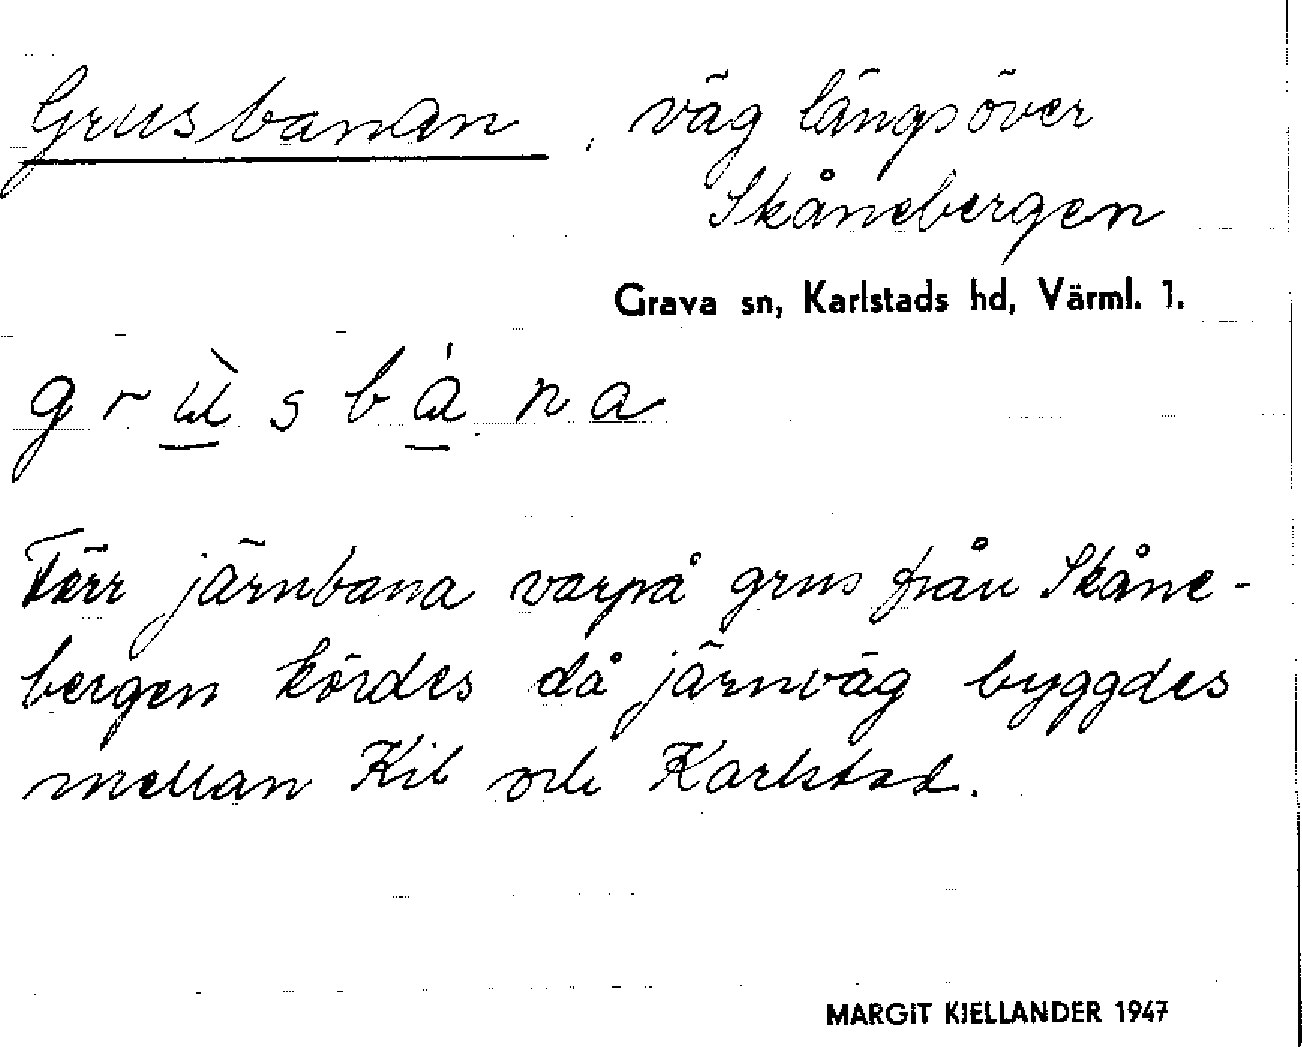 Grusbanan, väg längsöver
Skånebergen
Grava sn, Karlstads hd, Värml. 1.
grùsbána
Förr järnbana varpå grus från Skåne-
bergen kördes då järnväg byggdes
mellan Kil och Karlstad.
MARGIT KJELLANDER 1947